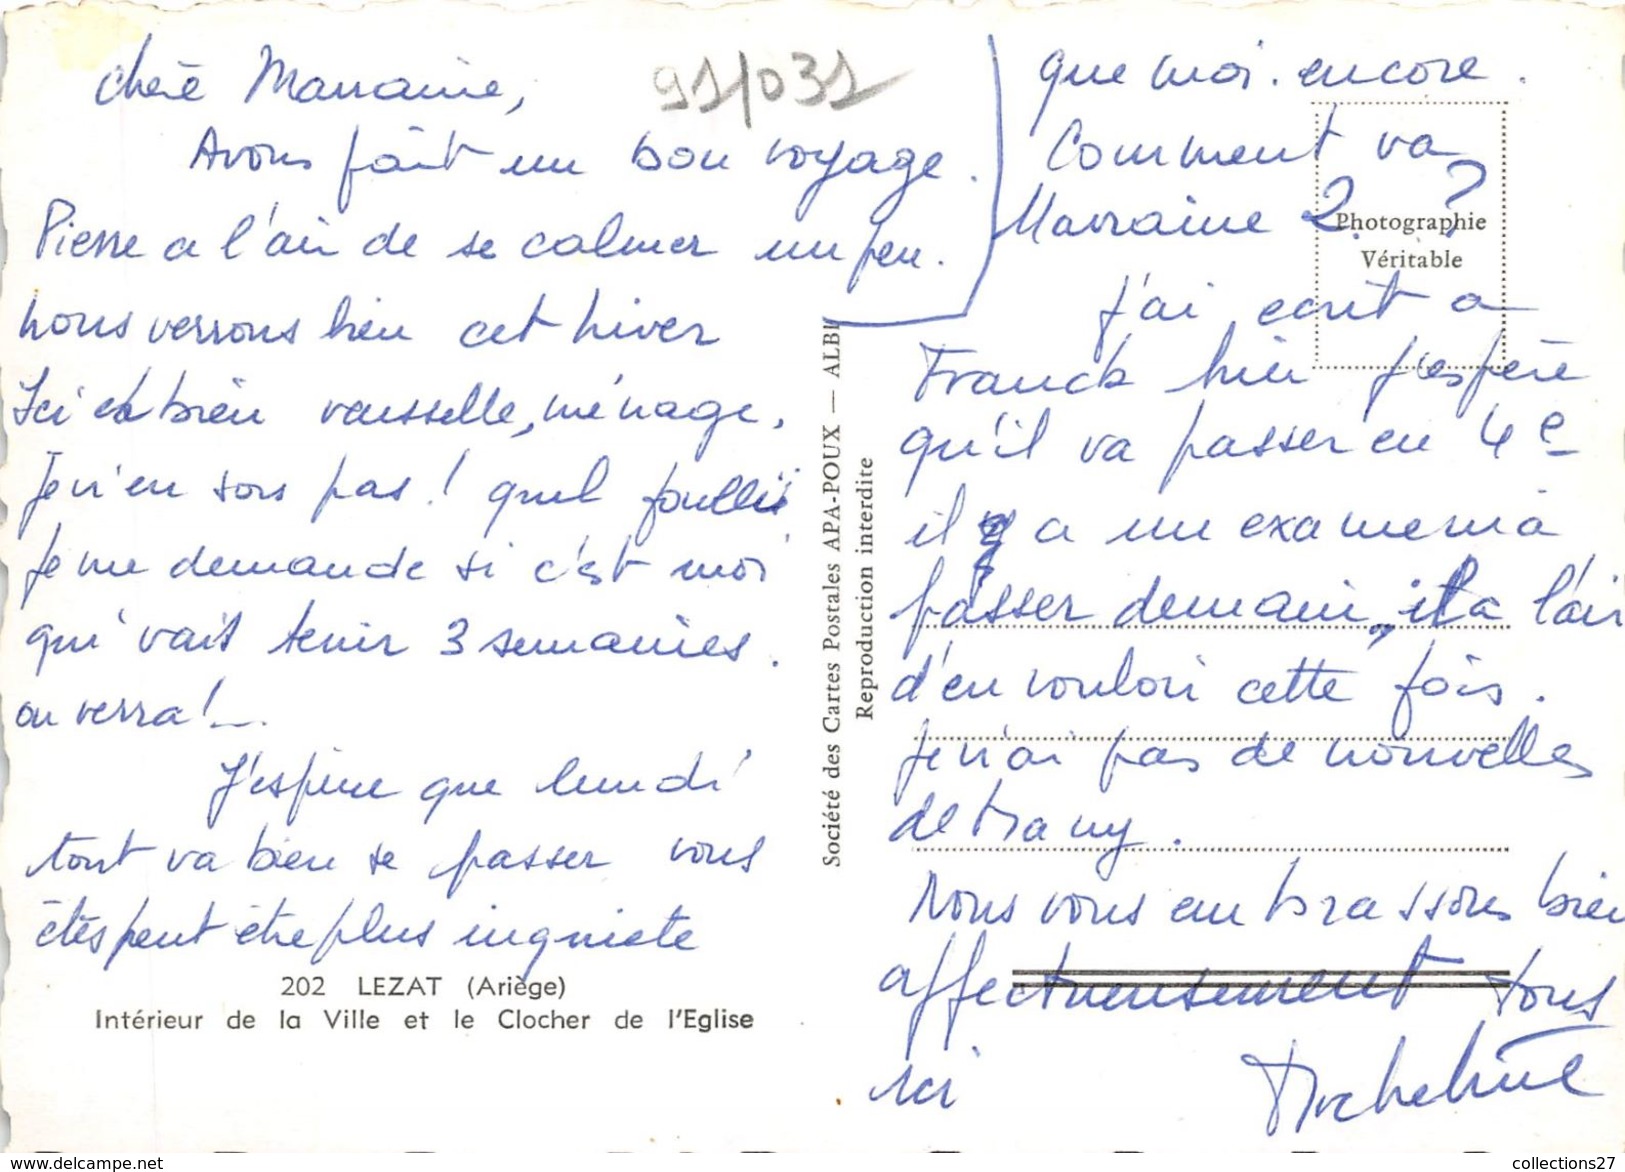 chère Marraine,
91/031
Avons fait un bon voyage.
Pierre a l'air de se calmer un peu.
nous verrons bien cet hiver
Ici eh bien vaisselle, ménage,
Je n'en sors pas! quel foullis
Je me demande si c'est moi
qui vait tenir 3 semaines.
on verra!_
J'espère que lundi
tout va bien se passer vous
étés peut être plus inquiete
202 LEZAT (Ariège)
Intérieur de la Ville et le Clocher de l'Eglise
Société des Cartes Postales APA-POUX — ALBI
Reproduction interdite
que moi. encore.
Comment va
Marraine 2 ?
Photographie
Véritable
J'ai ecrit a
Franck hier j'espère
qu'il va passer en 4e
il y a un examen a
passer demain, il a l'air
d'en vouloir cette fois.
Je n'ai pas de nouvelles
de
Nous vous embrassons bien
affectueusement tous
ici
collections27